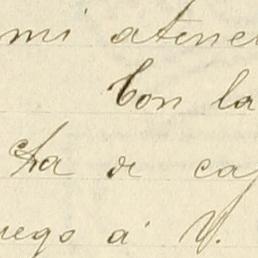 mi atenc
Con la
ta de ca
uego a V.